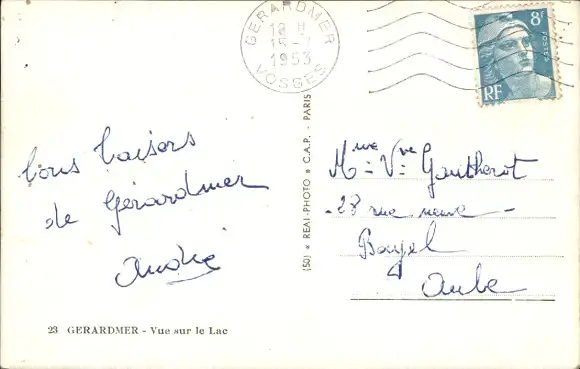 GERARDMER
18 H
15-7
1953
VOSGES
8F
POSTES
RF
Bons baisers
de Gérardmer
André
(50) « REAL-PHOTO » C.A.P. - PARIS
Mme Vve Gautherot
- 28 rue neuve -
Bayel
Aube
23 GERARDMER - Vue sur le Lac